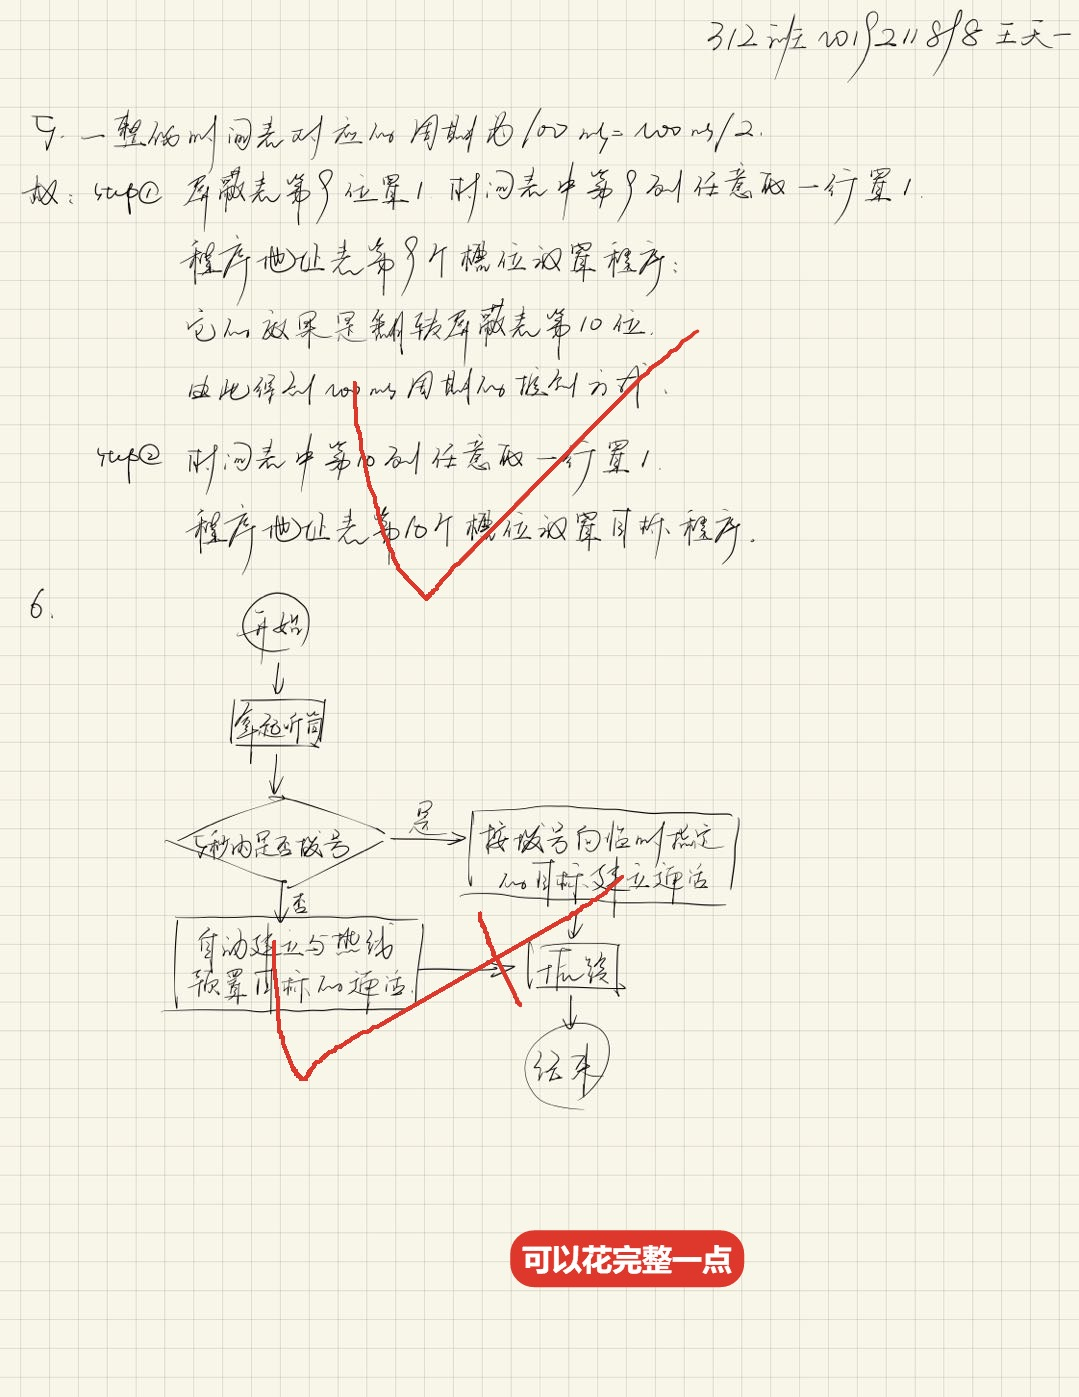 312班 2019211898 王天一
5. 一整张时间表对应的周期为100ms=200ms/2.
故: step① 屏蔽表第9位置1 时间表中第9列任意取一行置1.
程序地址表第9个槽位放置程序:
它的效果是翻转屏蔽表第10位.
由此得到200ms周期的控制方式.
step② 时间表中第10列任意取一行置1.
程序地址表第10个槽位放置目标程序.
6.
开始
拿起听筒
5秒内是否拨号
是
按拨号向临时指定
的目标建立通话
否
自动建立与热线
预置目标的通话.
结束
可以花完整一点